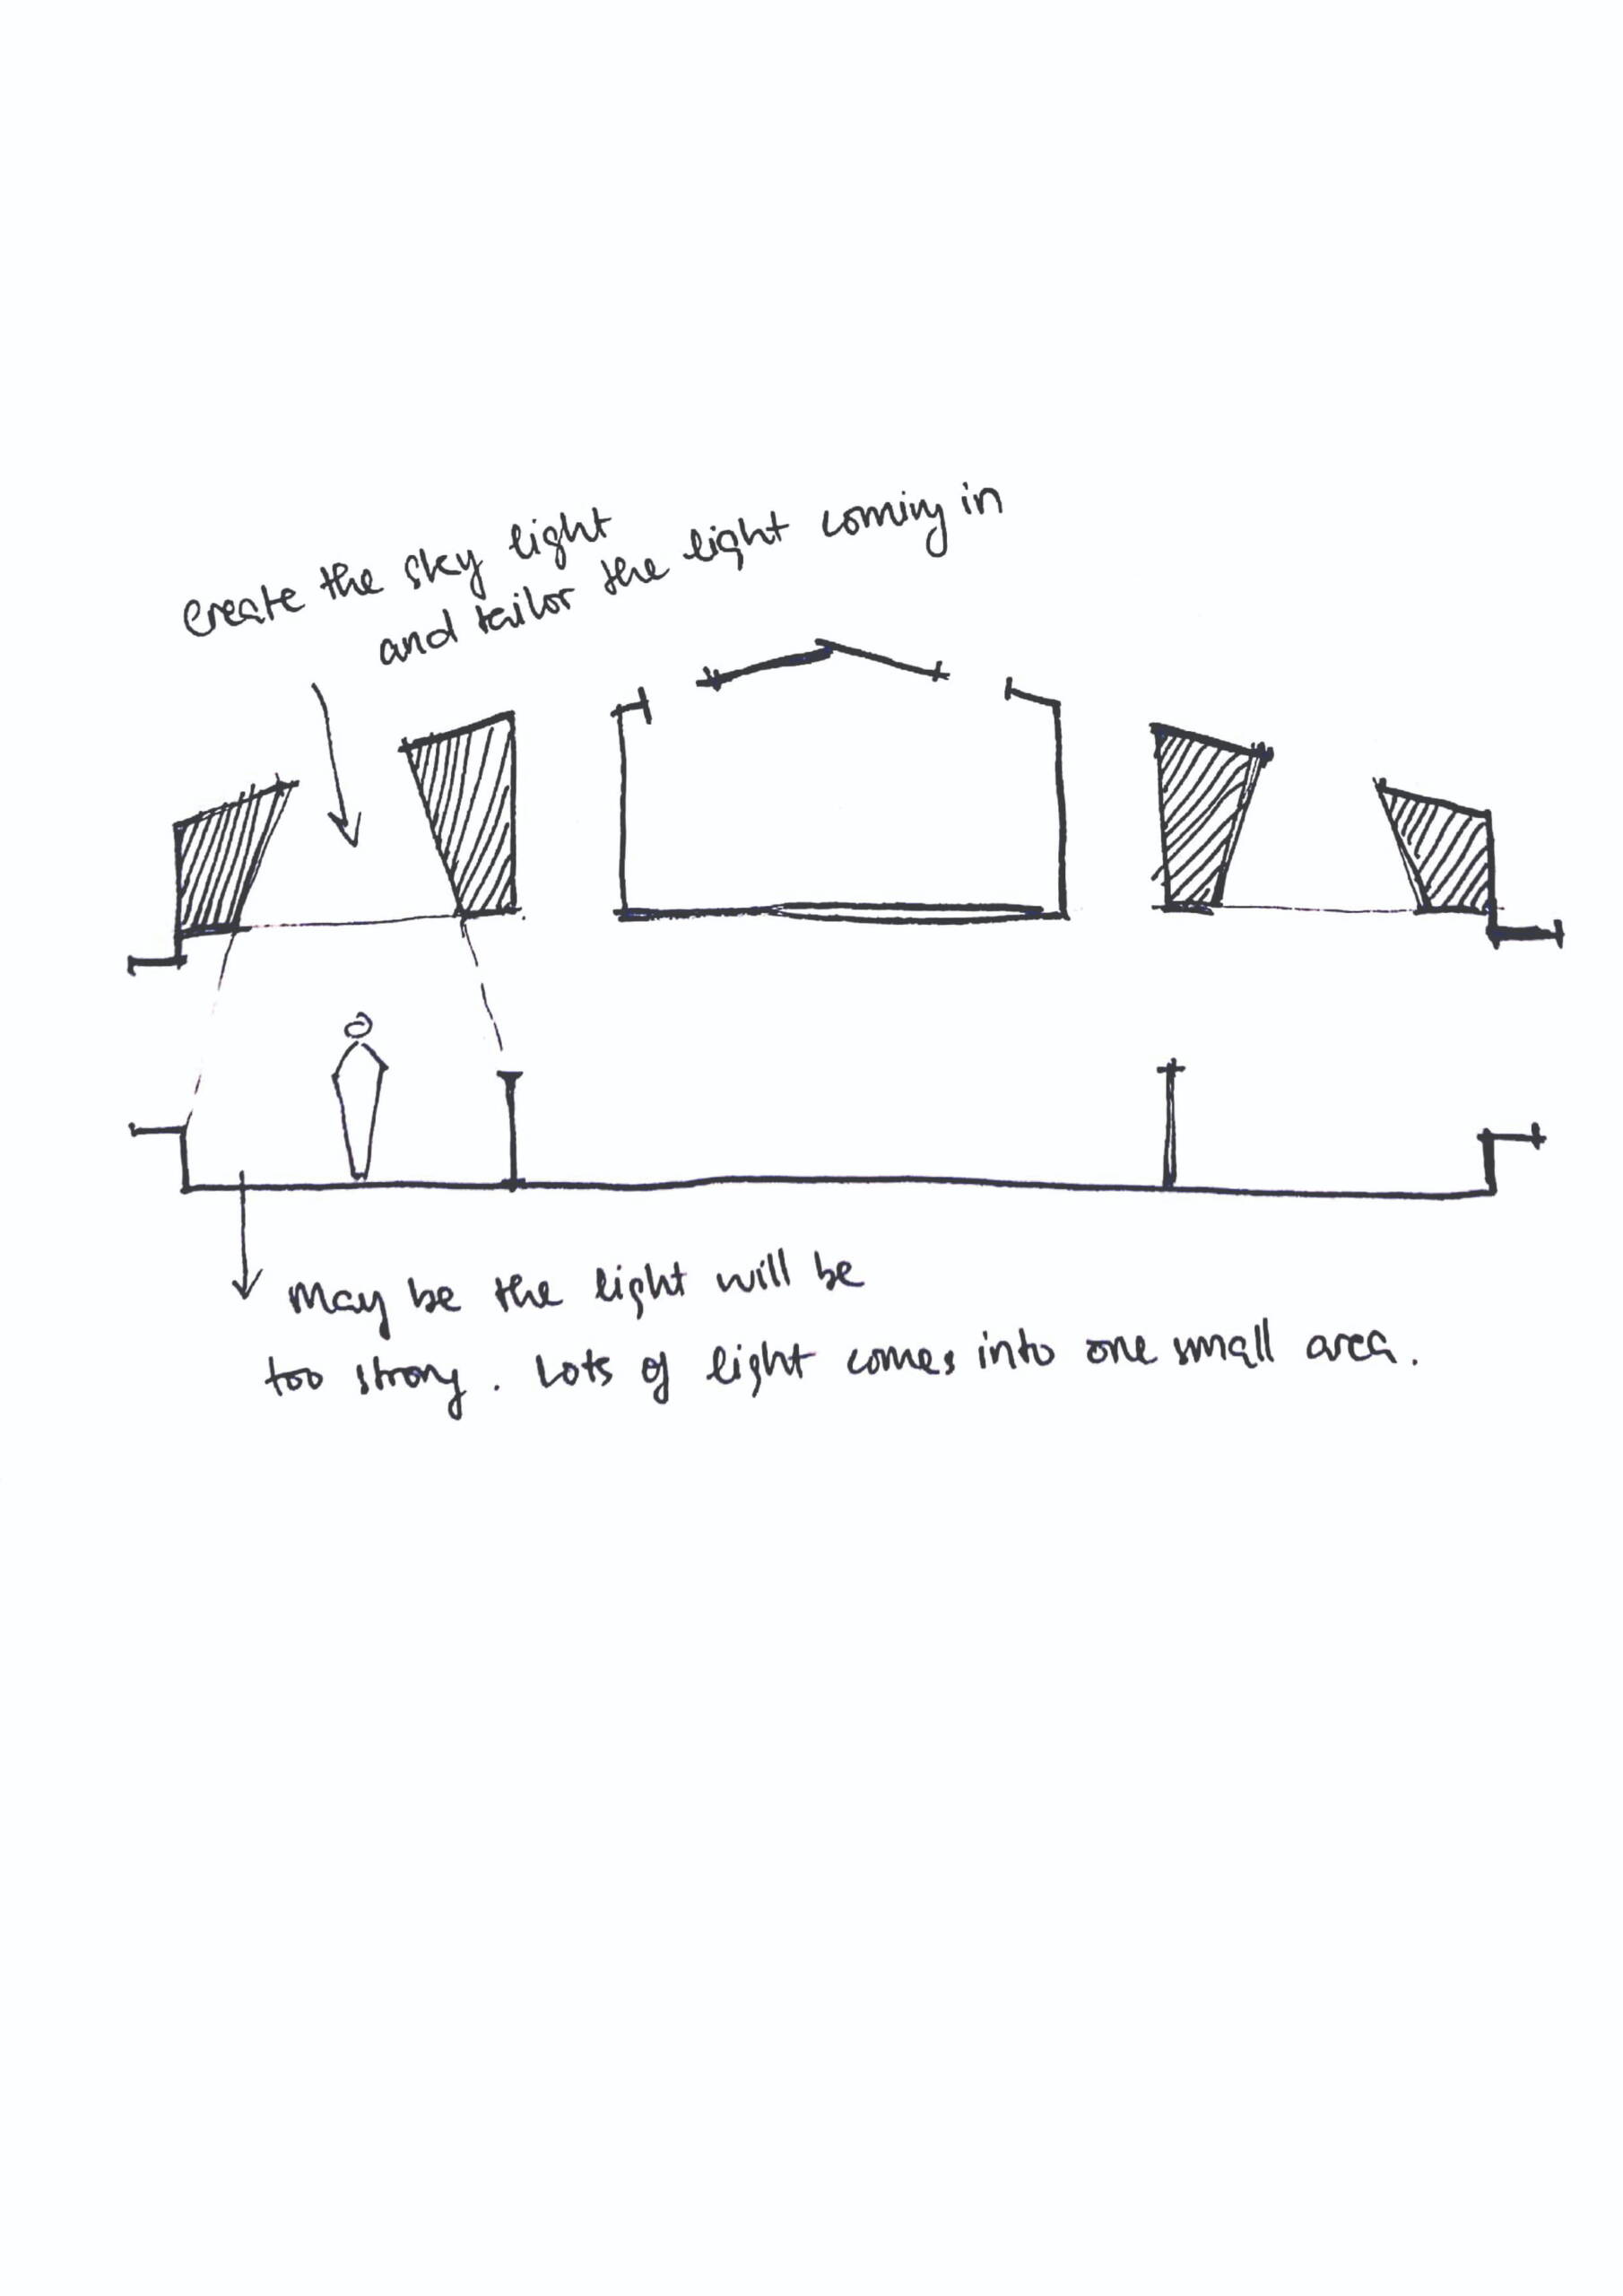 create the sky light
and tailor the light coming in
May be the light will be
too strong. Lots of light comes into one small area.